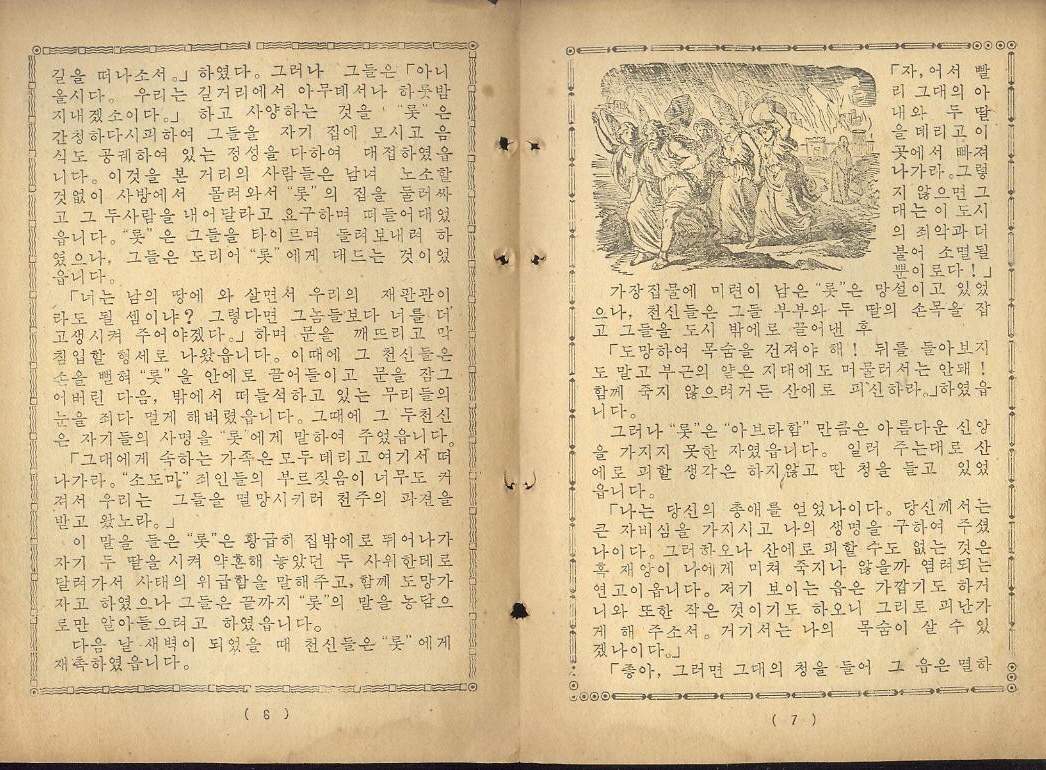 길을 떠나소서。」 하였다. 그러나 그들은 「아니
올시다. 우리는 길거리에서 아무데서나 하룻밤
지내겠소이다。」 하고 사양하는 것을 “롯” 은
간청하다시피하여 그들을 자기 집에 모시고 음
식도 공궤하여 있는 정성을 다하여 대접하였읍
니다. 이것을 본 거리의 사람들은 남녀 노소할
것없이 사방에서 몰려와서 “롯” 의 집을 둘러싸
고 그 두사람을 내어달라고 요구하며 떠들어대었
읍니다. “롯” 은 그들을 타이르며 돌려보내려 하
였으나, 그들은 도리어 “롯” 에게 대드는 것이었
읍니다.
「너는 남의 땅에 와 살면서 우리의 재판관이
라도 될 셈이냐? 그렇다면 그놈들보다 너를 더
고생시켜 주어야겠다。」 하며 문을 깨뜨리고 막
침입할 형세로 나왔읍니다. 이때에 그 천신들은
손을 뻗혀 “롯” 을 안에로 끌어들이고 문을 잠그
어버린 다음, 밖에서 떠들석하고 있는 무리들의
눈을 죄다 멀게 해버렸읍니다. 그때에 그 두천신
은 자기들의 사명을 “롯”에게 말하여 주었읍니다.
「그대에게 속하는 가족은 모두 데리고 여기서 떠
나가라. “소도마” 죄인들의 부르짖음이 너무도 커
져서 우리는 그들을 멸망시키러 천주의 파견을
받고 왔노라。」
이 말을 들은 “롯”은 황급히 집밖에로 뛰어나가
자기 두 딸을 시켜 약혼해 놓았던 두 사위한테로
달려가서 사태의 위급함을 말해주고, 함께 도망가
자고 하였으나 그들은 끝까지 “롯”의 말을 농담으
로만 알아들으려고 하였읍니다.
다음 날 새벽이 되었을 때 천신들은 “롯” 에게
재촉하였읍니다.
( 6 )
「자, 어서 빨
리 그대의 아
내와 두 딸
을 데리고 이
곳에서 빠져
나가라. 그렇
지 않으면 그
대는 이 도시
의 죄악과 더
불어 소멸될
뿐이로다!」
가장집물에 미련이 남은 “롯”은 망설이고 있었
으나, 천신들은 그들 부부와 두 딸의 손목을 잡
고 그들을 도시 밖에로 끌어낸 후
「도망하여 목숨을 건져야 해! 뒤를 돌아보지
도 말고 부근의 얕은 지대에도 머물러서는 안돼!
함께 죽지 않으려거든 산에로 피신하라。」하였읍
니다.
그러나 “롯”은 “아브라함” 만큼은 아름다운 신앙
을 가지지 못한 자였읍니다. 일러 주는대로 산
에로 피할 생각은 하지않고 딴 청을 들고 있었
읍니다.
「나는 당신의 총애를 얻었나이다. 당신께서는
큰 자비심을 가지시고 나의 생명을 구하여 주셨
나이다. 그러하오나 산에로 피할 수도 없는 것은
혹 재앙이 나에게 미쳐 죽지나 않을까 염려되는
연고이옵니다. 저기 보이는 읍은 가깝기도 하거
니와 또한 작은 것이기도 하오니 그리로 피난가
게 해 주소서. 거기서는 나의 목숨이 살 수 있
겠나이다。」
「좋아, 그러면 그대의 청을 들어 그 읍은 멸하
( 7 )